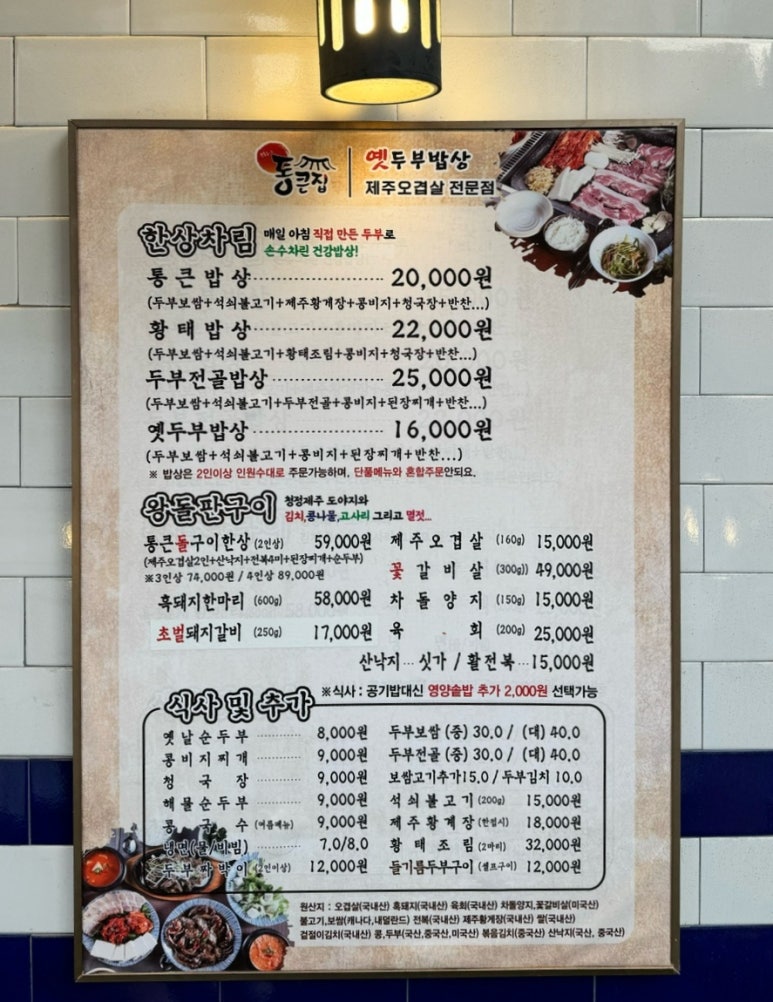 통큰집
옛두부밥상
제주오겹살 전문점
한상차림 매일 아침 직접 만든 두부로
손수차린 건강밥상!
통큰밥상 20,000원
(두부보쌈+석쇠불고기+제주황게장+콩비지+청국장+반찬...)
황태밥상 22,000원
(두부보쌈+석쇠불고기+황태조림+콩비지+청국장+반찬...)
두부전골밥상 25,000원
(두부보쌈+석쇠불고기+두부전골+콩비지+된장찌개+반찬...)
옛두부밥상 16,000원
(두부보쌈+석쇠불고기+콩비지+된장찌개+반찬...)
※ 밥상은 2인이상 인원수대로 주문가능하며, 단품메뉴와 혼합주문안되요.
왕돌판구이 청정제주 도야지와
김치,콩나물,고사리 그리고 멜젓...
통큰돌구이한상 (2인상) 59,000원
(제주오겹살2인+산낙지+전복4미+된장찌개+순두부)
※3인상 74,000원 / 4인상 89,000원
흑돼지한마리 (600g) 58,000원
초벌돼지갈비 (250g) 17,000원
제주오겹살 (160g) 15,000원
꽃갈비살 (300g)) 49,000원
차돌양지 (150g) 15,000원
육회 (200g) 25,000원
산낙지 ... 싯가 / 활전복 ... 15,000원
※식사 : 공기밥대신 영양솥밥 추가 2,000원 선택가능
식사 및 추가
옛날순두부 8,000원
콩비지찌개 9,000원
청국장 9,000원
해물순두부 9,000원
콩국수 (여름메뉴) 9,000원
냉면(물/비빔) 7.0/8.0
두부짜박이 (2인이상) 12,000원
두부보쌈 (중) 30.0 / (대) 40.0
두부전골 (중) 30.0 / (대) 40.0
보쌈고기추가15.0 / 두부김치 10.0
석쇠불고기 (200g) 15,000원
제주황게장 (한접시) 18,000원
황태조림 (2마리) 32,000원
들기름두부구이 (셀프구이) 12,000원
원산지 : 오겹살(국내산) 흑돼지(국내산) 육회(국내산) 차돌양지,꽃갈비살(미국산)
불고기,보쌈(캐나다,네덜란드) 전복(국내산) 제주황게장(국내산) 쌀(국내산)
겉절이김치(국내산) 콩,두부(국산,중국산,미국산) 볶음김치(중국산) 산낙지(국산, 중국산)